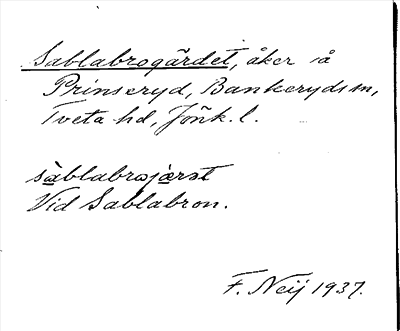 Sablabrogärdet, åker å
Prinseryd, Bankeryds sn,
Tveta hd, Jönk. l.
sàblabrojæ̀rət
Vid Sablabron.
F. Neij 1937.